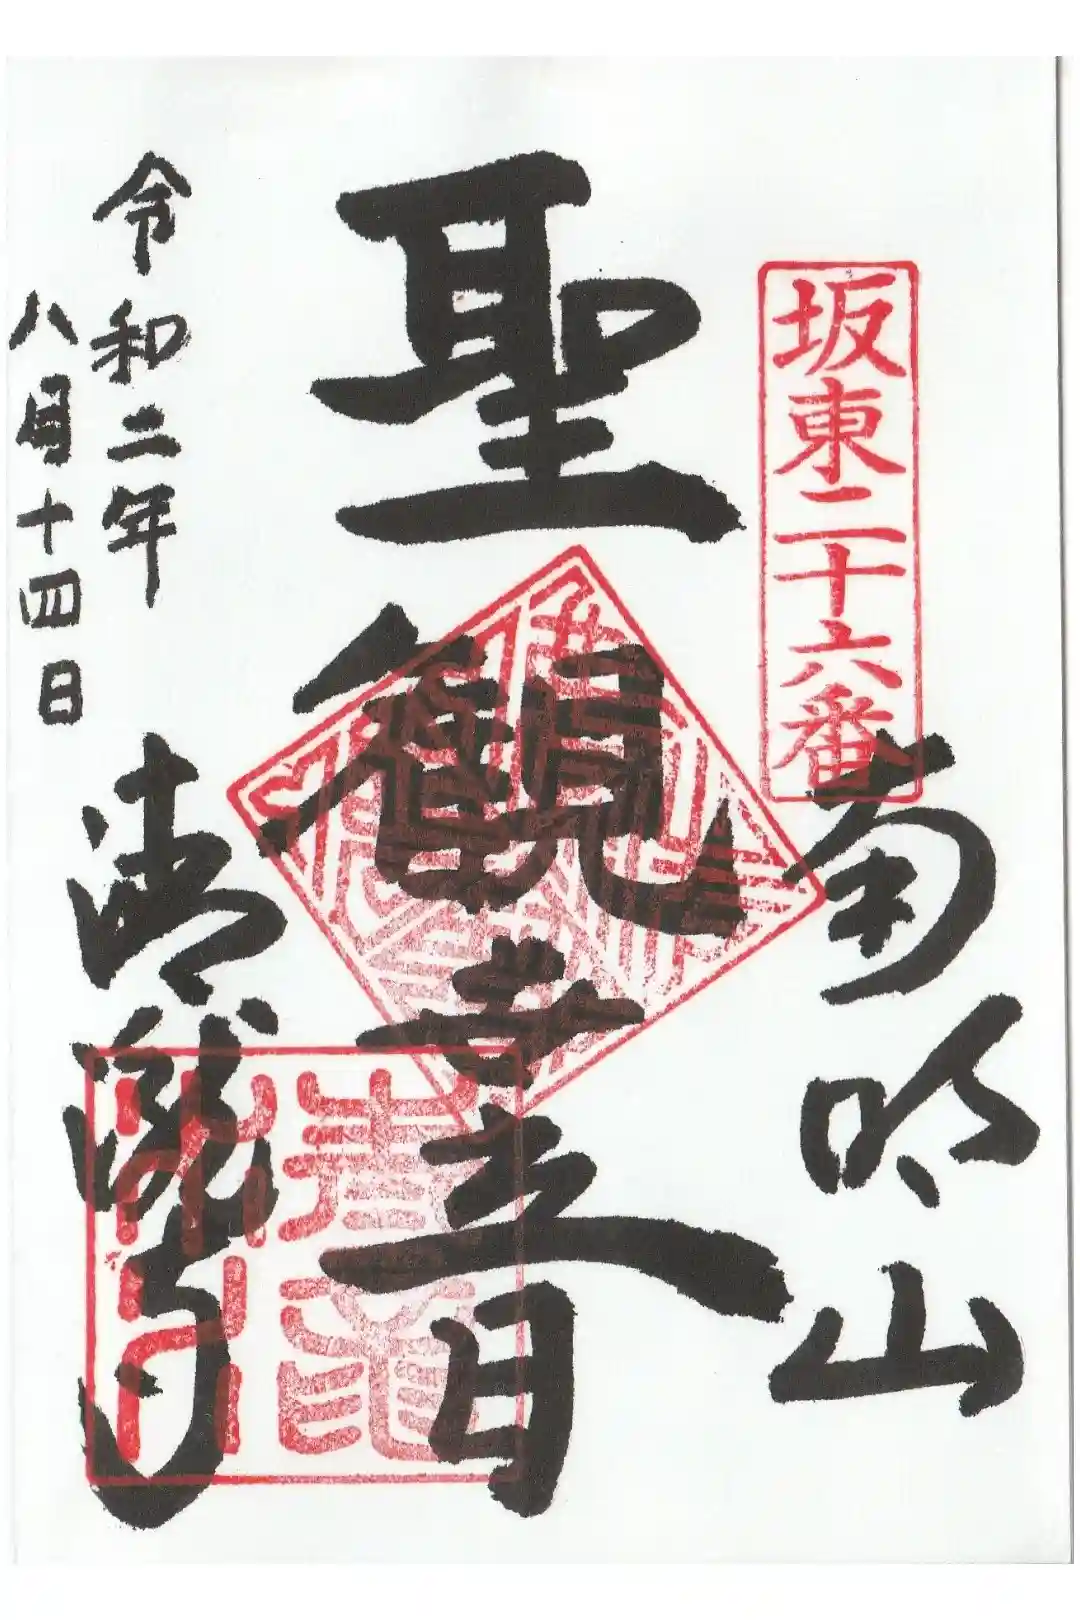 坂東二十六番
南明山
聖観世音
令和二年
八月十四日
清瀧寺